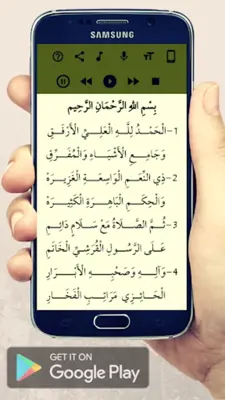 SAMSUNG
بِسْمِ اللهِ الرَّحْمَانِ الرَّحِيمِ
1- الْحَمْدُ لِلَّهِ الْعَلِيِّ الْأَرْفَقِ
وَجَامِعِ الْأَشْيَاءِ وَالْمُفَرِّقِ
2- ذِي النِّعَمِ الْوَاسِعَةِ الْغَزِيرَةْ
وَالْحِكَمِ الْبَاهِرَةِ الْكَثِيرَةْ
3- ثُمَّ الصَّلَاةُ مَعْ سَلَامٍ دَائِمِ
عَلَى الرَّسُولِ الْقُرَشِيِّ الْخَاتَمِ
4- وَآلِهِ وَصَحْبِهِ الْأَبْرَارِ
الْحَائِزِي مَرَاتِبِ الْفَخَارِ
GET IT ON
Google Play